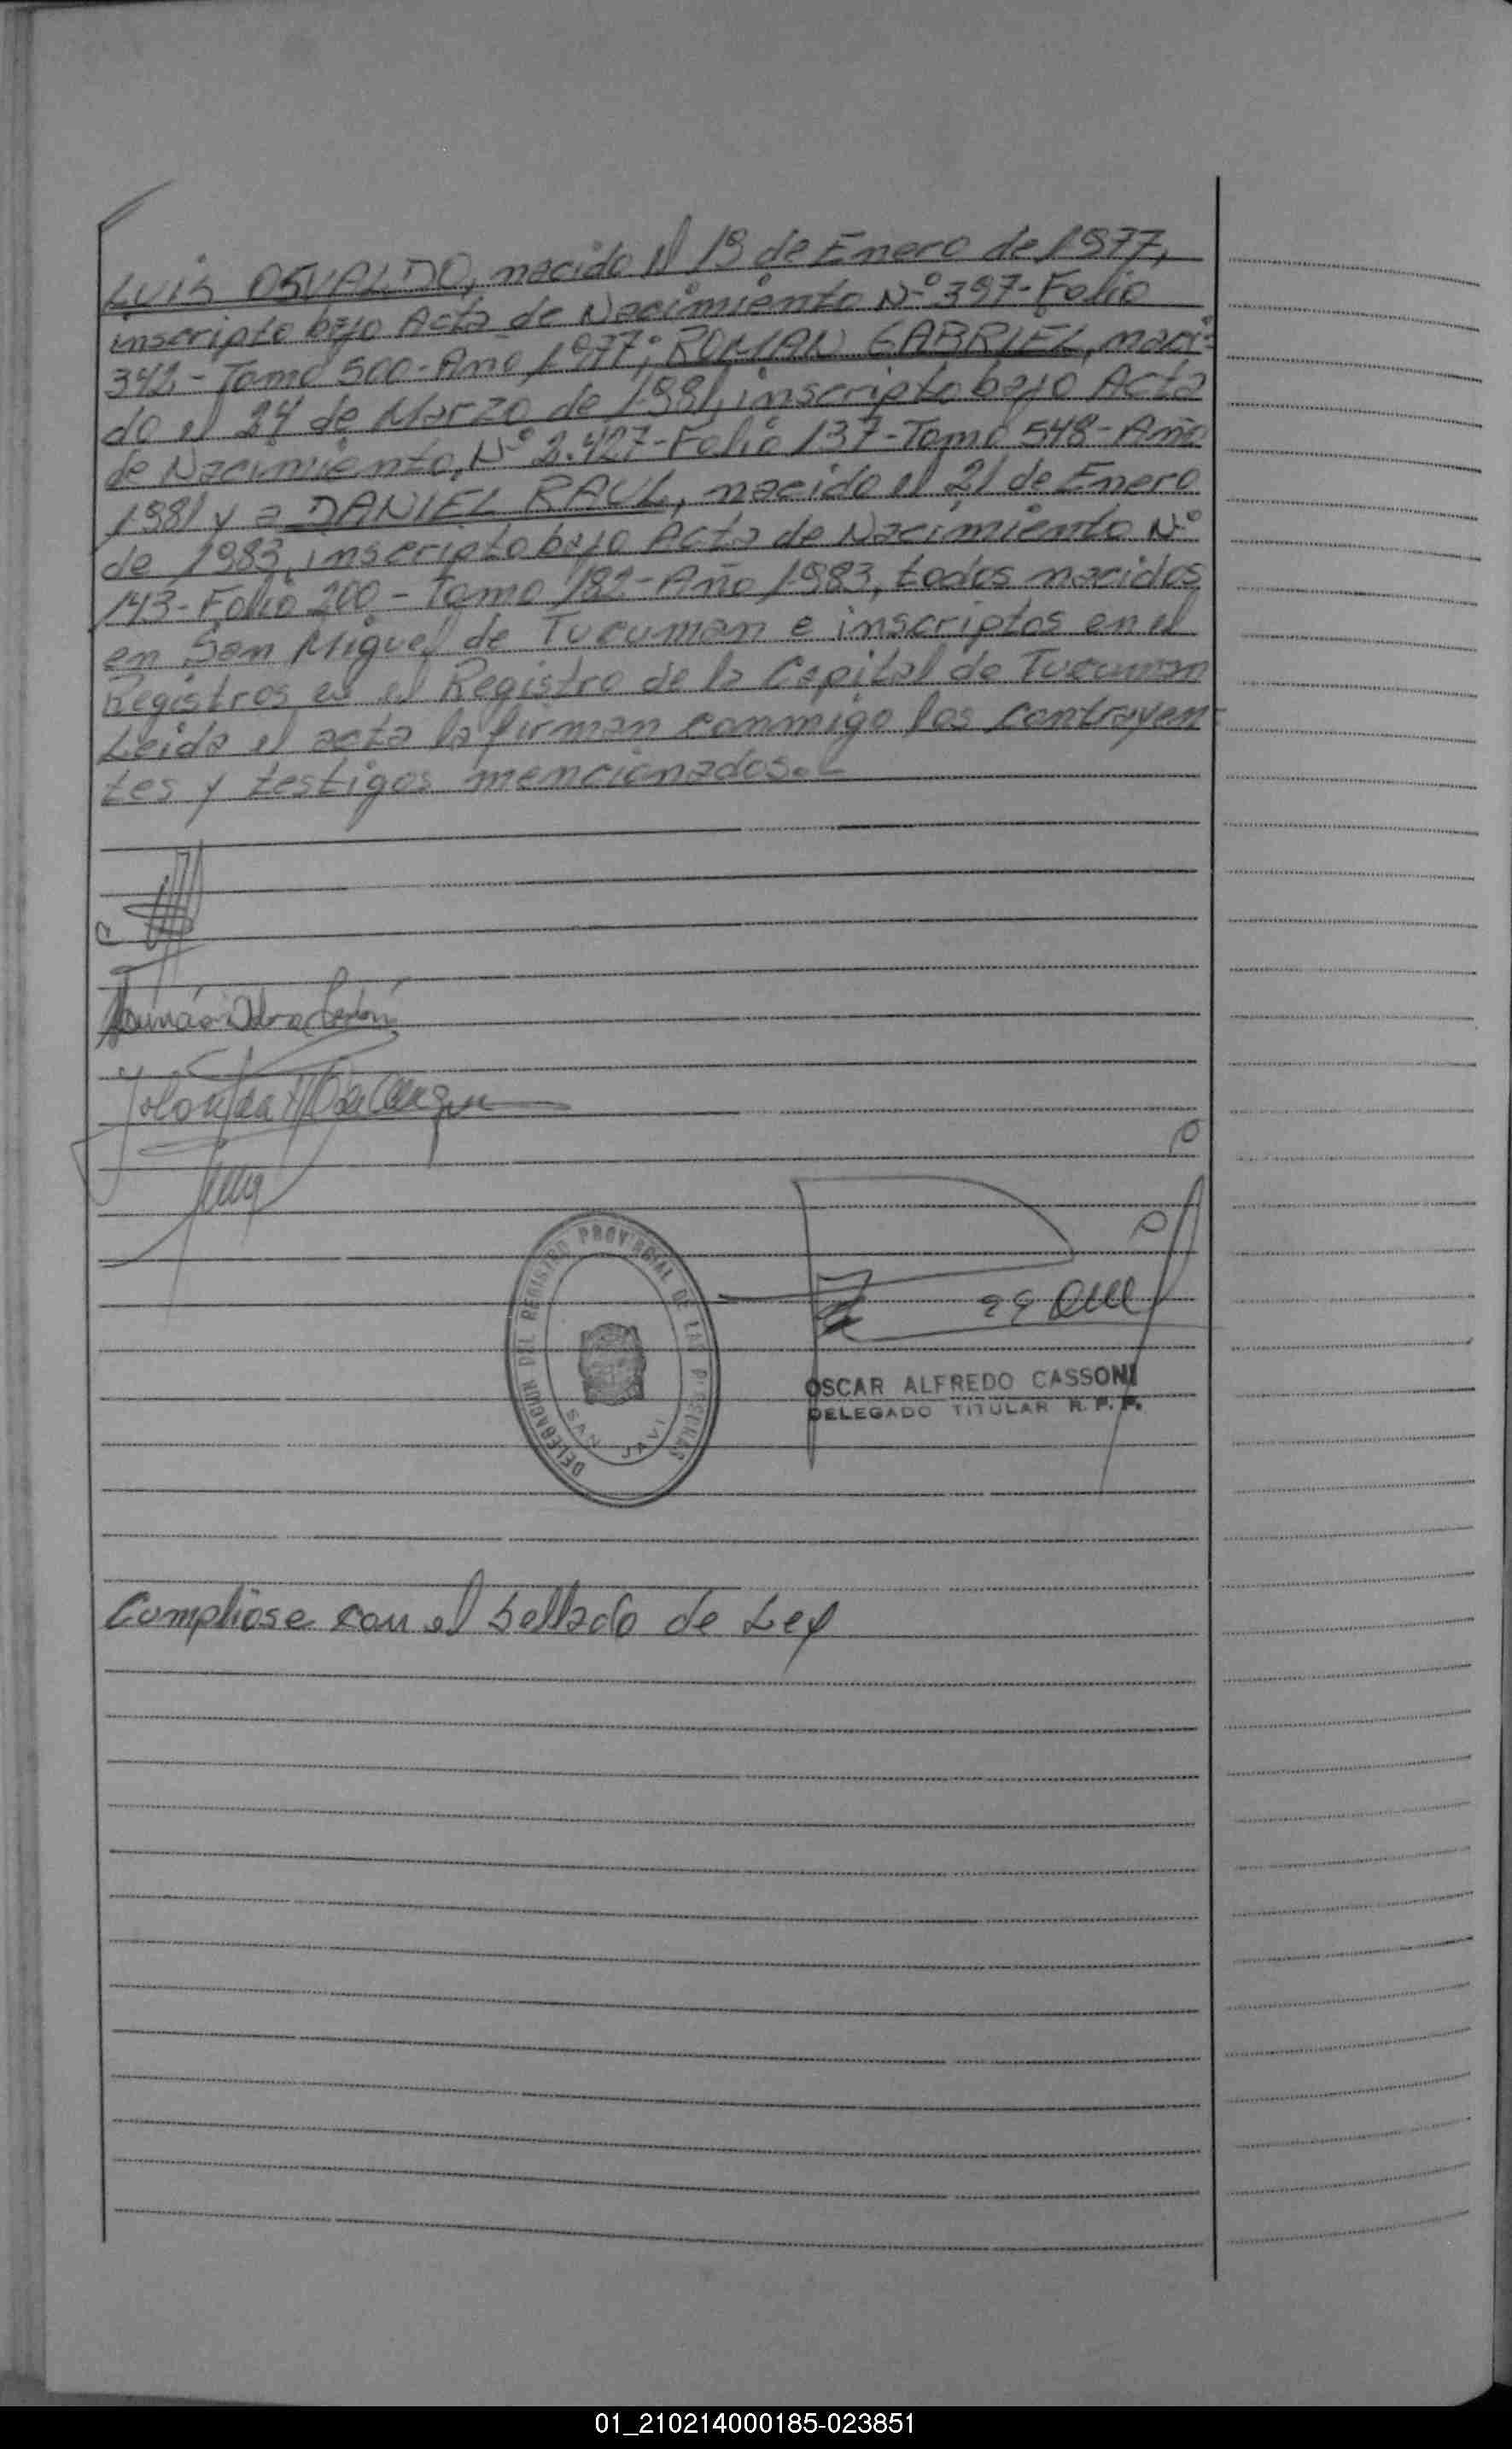 LUIS OSVALDO, nacido el 19 de Enero de 1977,
inscripto bajo Acta de Nacimiento Nº 397-Folio
342-Tomo 500-Año 1977; ROMAN GABRIEL, naci-
do el 24 de Marzo de 1981, inscripto bajo Acta
de Nacimiento, Nº 2.427-Folio 137-Tomo 548-Año
1981 y a DANIEL RAUL, nacido el 21 de Enero
de 1983, inscripto bajo Acta de Nacimiento Nº
143-Folio 200-Tomo 182-Año 1983, todos nacidos
en San Miguel de Tucuman e inscriptos en el
Registros en el Registro de la Capital de Tucuman
Leida el acta la firman conmigo los contrayen-
tes y testigos mencionados.-
Yolanda
DELEGACION DEL REGISTRO PROVINCIAL DE LAS PERSONAS
SAN JAVI
OSCAR ALFREDO CASSONI
DELEGADO TITULAR R. P. P.
Cumpliose con el Sellado de Ley
01_210214000185-023851